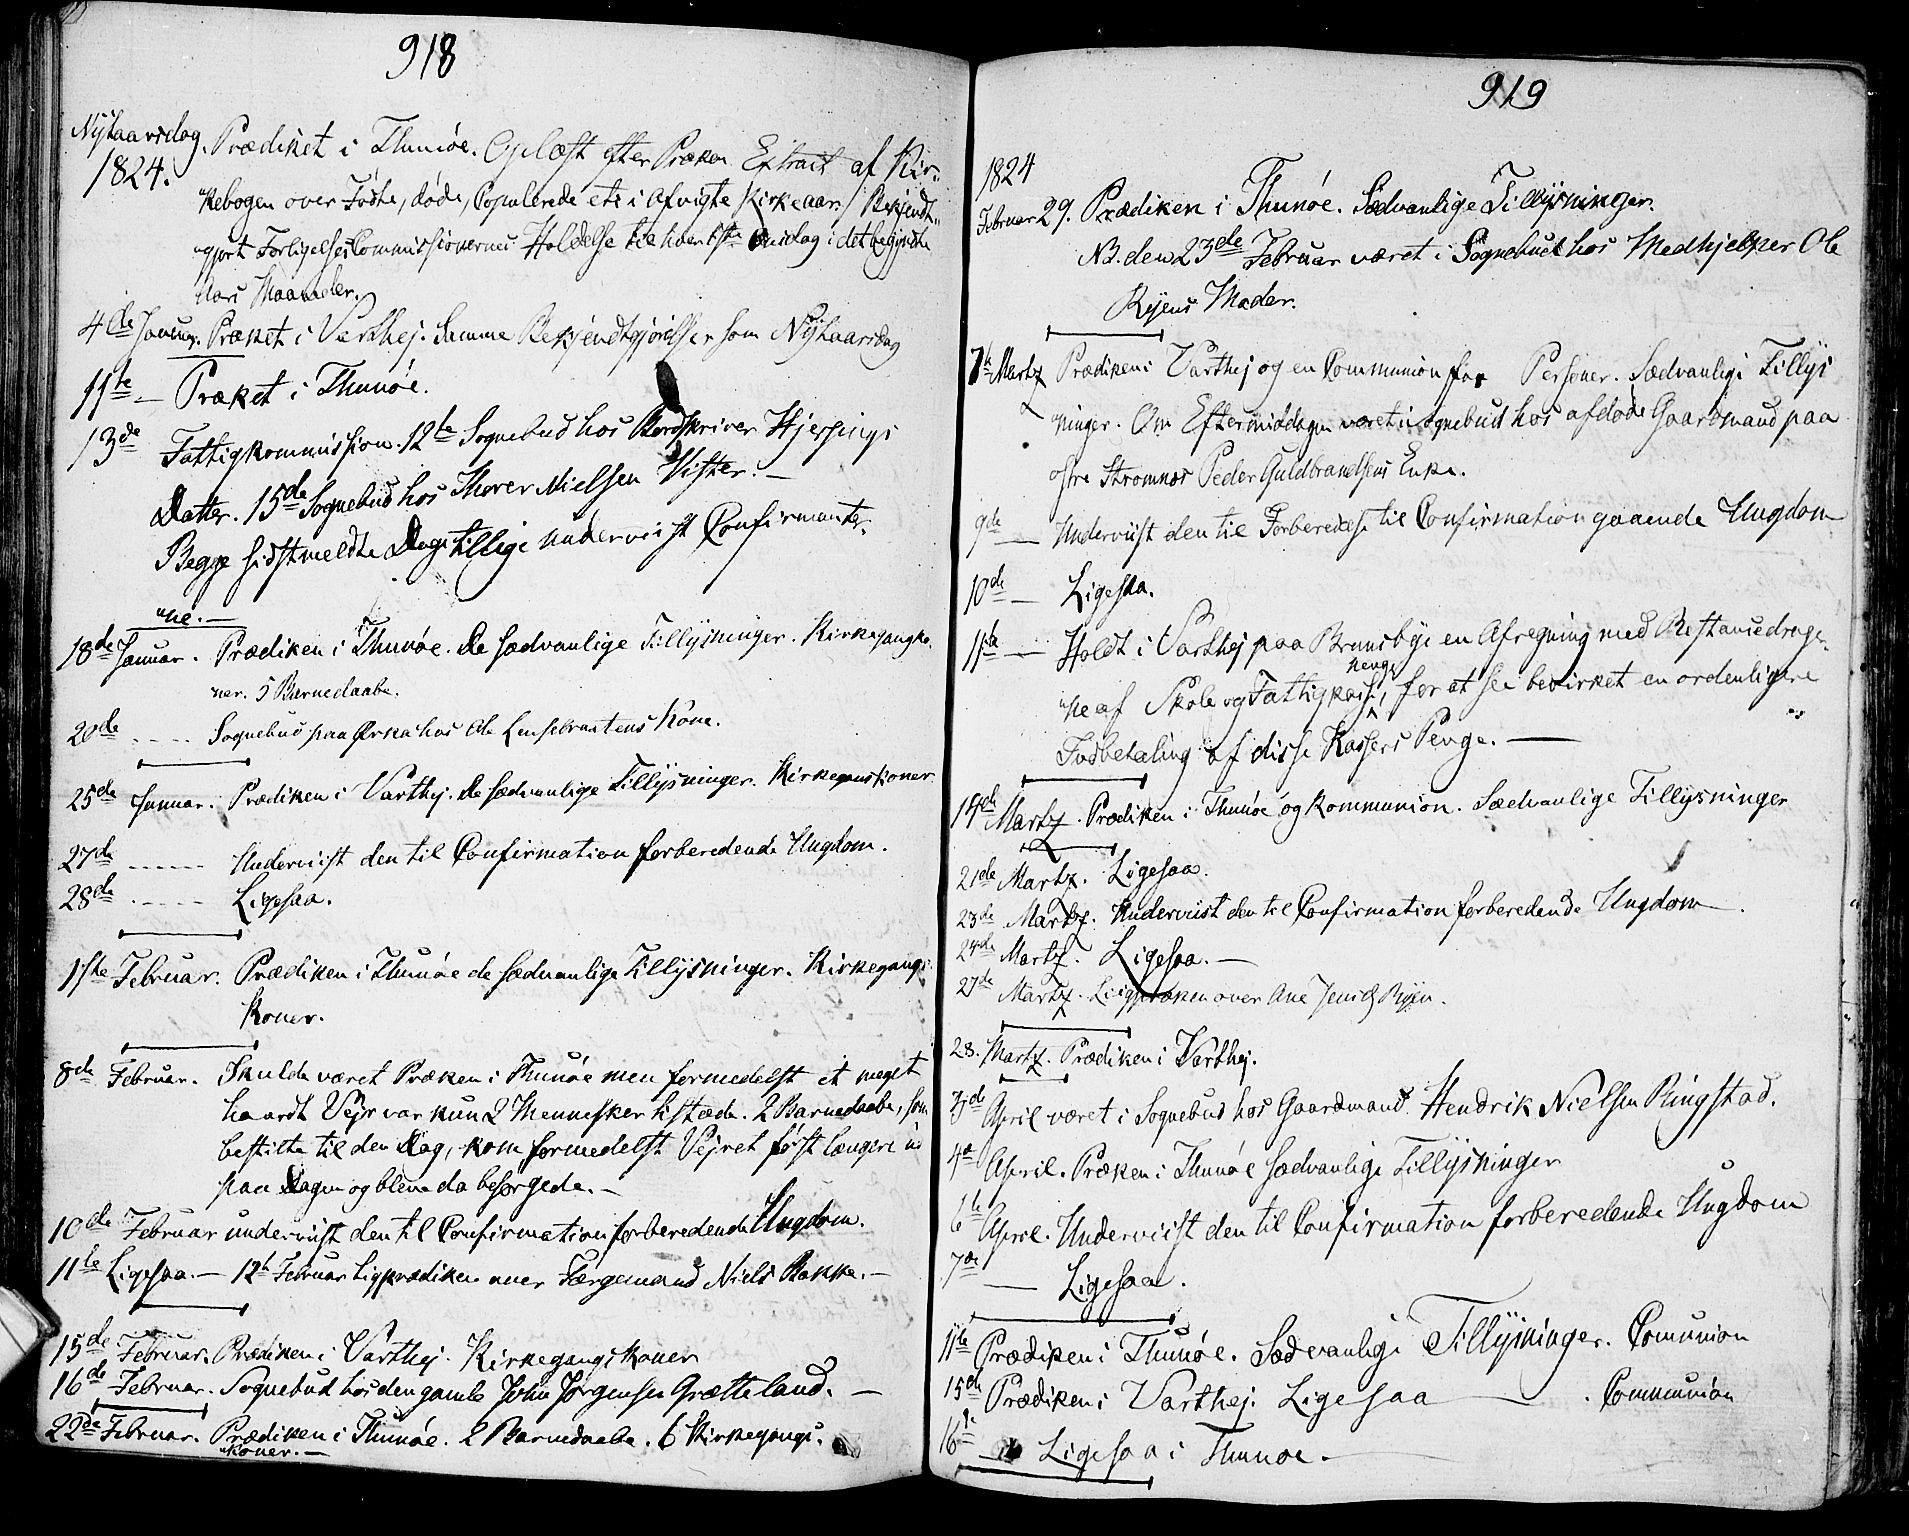 918
Nytaarsdag. Prædiket i Thunøe. Oplæst efter Præken Extract af Kir-
1824. kebogen over Fødte, døde, Copulerede etc i afvigte Kirkeaar / Bekjendt-
gjort ForligelsesCommissionernes Holdelse til hver 1ste Onsdag i det begyndte
Aars Maaneder.
4de Januar. Præket i Varthej. Samme Bekjendtgjørelser som Nytaarsdag
11te — Præket i Thunøe.
13de Fattigkommission. 12te Sognebud hos Bordskriver Hjersings
Datter. 15de Sognebud hos Thorer Nielsen Vister. —
Begge sidstmeldte Dage tillige underviist Confirmanter-
ne. —
18de Januar. Prædiken i Thunøe. De sædvanlige Tillysninger. Kirkegangsko-
ner. 5 Barnedaabe.
20de - - - - Sognebud paa Ørka hos Ole Kone.
25de Januar. Prædiken i Varthej. De sædvanlige Tillysninger. Kirkegangskoner
27de - - - - - Underviist den til Confirmation forberedende Ungdom.
28de - - - - - Ligesaa.
1ste Februar. Prædiken i Thunøe de sædvanlige Tillysninger. Kirkegangs
Koner.
8de Februar. Skulde været Præken i Thunøe men formedelst et meget
haardt Vejr var kun 2 Mennesker tilstæde. 2 Barnedaabe, som
bestilte til den Dag, kom formedelst Vejret først længere ud
paa Dagen og bleve da besørgede. —
10de Februar underviist den til Confirmation forberedende Ungdom.
11te Ligesaa. — 12te Februar Ligprædiken over Færgemand Niels Bakke. —
15de Februar. Prædiken i Varthej. Kirkegangskoner
16de Februar. Sognebud hos den gamle John Jørgensen Grætteland. —
22de Februar. Prædiken i Thunøe. 2 Barnedaabe. 6 Kirkegangs-
koner. —
919
1824
Februar 29. Prædiken i Thunøe. Sædvanlige Tillysninger.
NB. den 23de Februar været i Sognebud hos Medhjelper Ole
Ryens Moder.
7de Martz Prædiken i Varthej og en Communion for Personer. Sædvanlige Tillys
ninger. Om Eftermiddagen været i Sognebud hos afdøde Gaardmand paa
østre Strømnes Peder Guldbrandsens Enke.
9de — Underviist den til Forberedelse til Confirmation gaaende Ungdom
10de — Ligesaa.
11te — Holdt i Varthej paa Brunsbye en Afregning med Restancedrage-
ne af Skole og Fattigkasse, for at see bevirket en ordenligere
penge
Indbetaling af disse Kassers Penge. —
14de Martz. Prædiken i Thunøe og Kommunion. Sædvanlige Tillysninger
21de Martz. Ligesaa.
23de Martz. Underviist den til Confirmation forberedende Ungdom.
24de Martz. Ligesaa. —
27de Martz. Liigpræken over Ane Jensd Ryen.
28. Martz. Prædiken i Varthej.
3de April været i Sognebud hos Gaardmand Hendrik Nielsen Ringstad.
4de April. Præken i Thunøe sædvanlige Tillysninger
6te April. Underviist den til Confirmation forberedende Ungdom
7de — Ligesaa.
11te Prædiken i Thunøe. Sædvanlige Tillysninger. Comunion
15de Prædiken i Varthej. Ligesaa — . Communion
16de Ligesaa i Thunøe. —